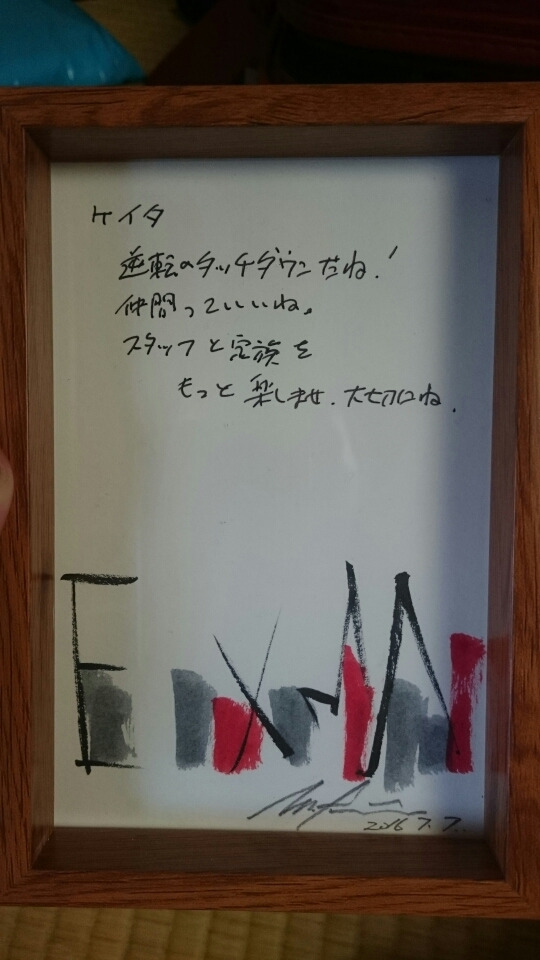 ケイタ
逆転のタッチダウンだね!
仲間っていいね。
スタッフと家族を
もっと楽しませ.大切にね.
2016 7.7.